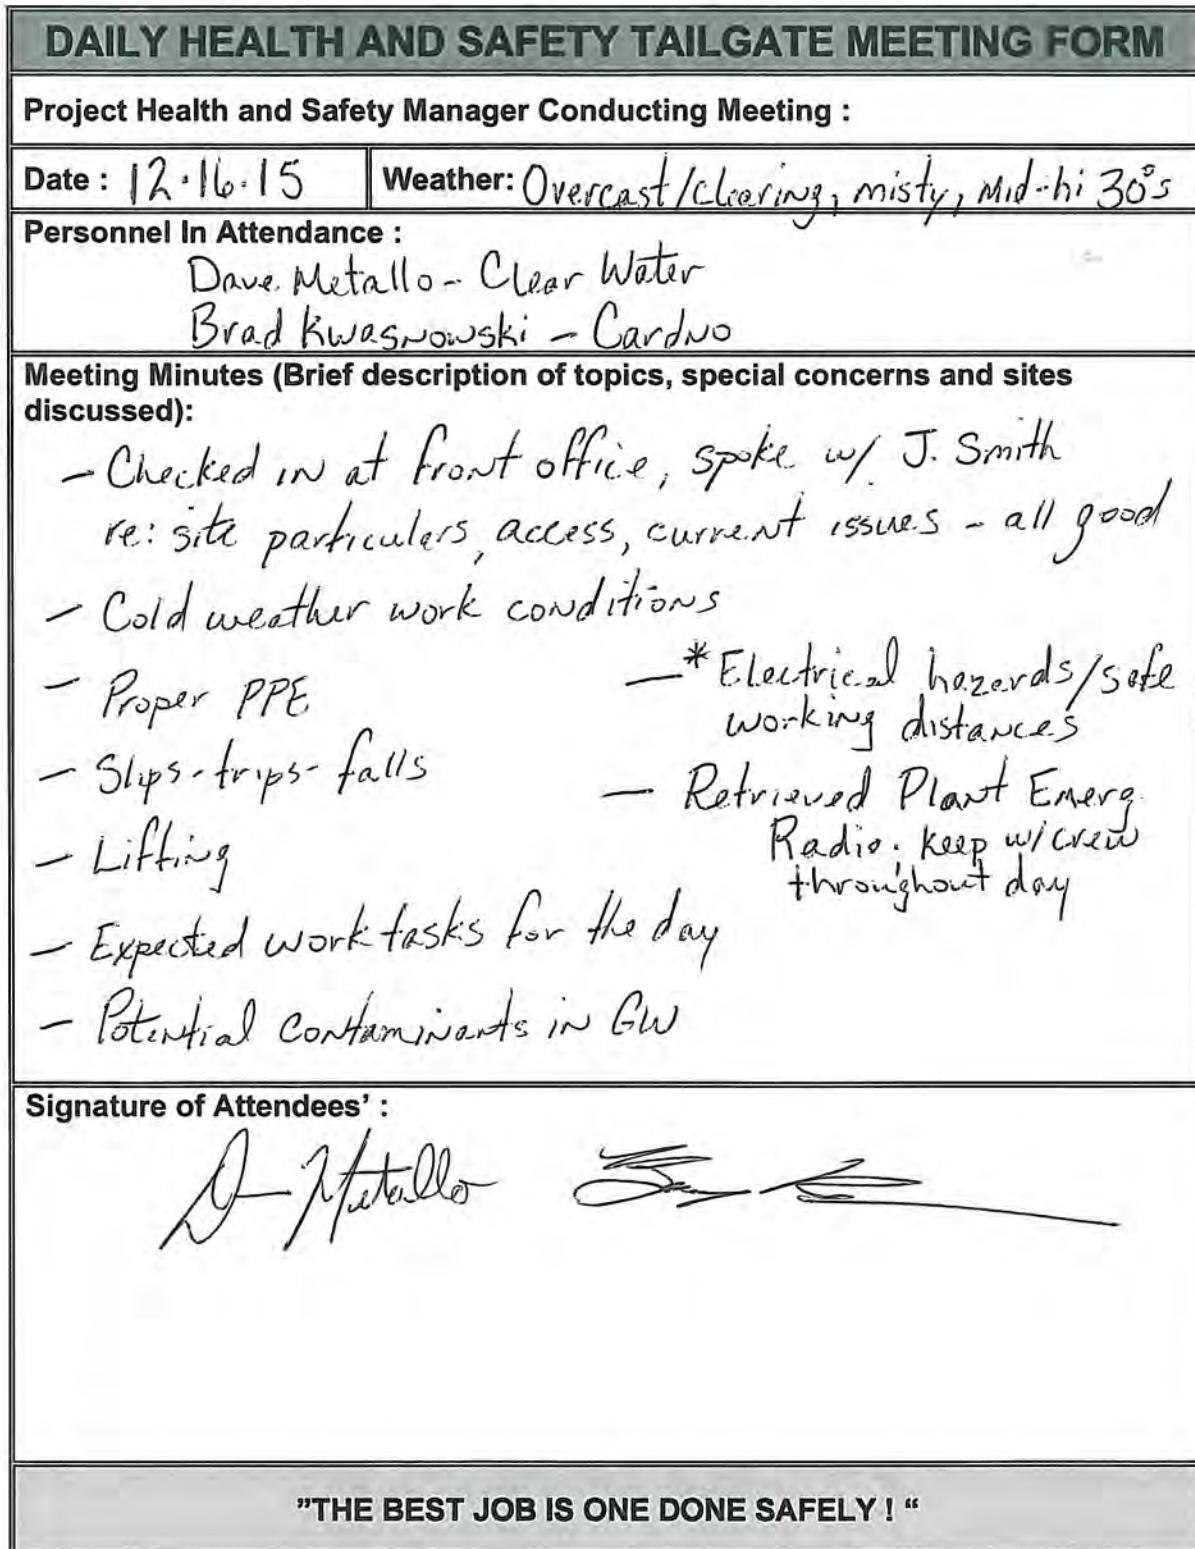 DAILY HEALTH AND SAFETY TAILGATE MEETING FORM
Project Health and Safety Manager Conducting Meeting :
Date : 12.16.15
Weather: Overcast/clearing, misty, Mid-hi 30°s
Personnel In Attendance :
Dave Metallo - Clear Water
Brad Kwasnowski - Cardno
Meeting Minutes (Brief description of topics, special concerns and sites
discussed):
- Checked in at front office, spoke w/ J. Smith
re: site particulers, access, current issues - all good
- Cold weather work conditions
- Proper PPE
- Slips-trips-falls
- Lifting
- Expected work tasks for the day
- Potential contaminants in GW
- *Electrical hazards/safe
working distances
- Retrieved Plant Emerg.
Radio. Keep w/crew
throughout day
Signature of Attendees' :
D Metallo
"THE BEST JOB IS ONE DONE SAFELY ! "